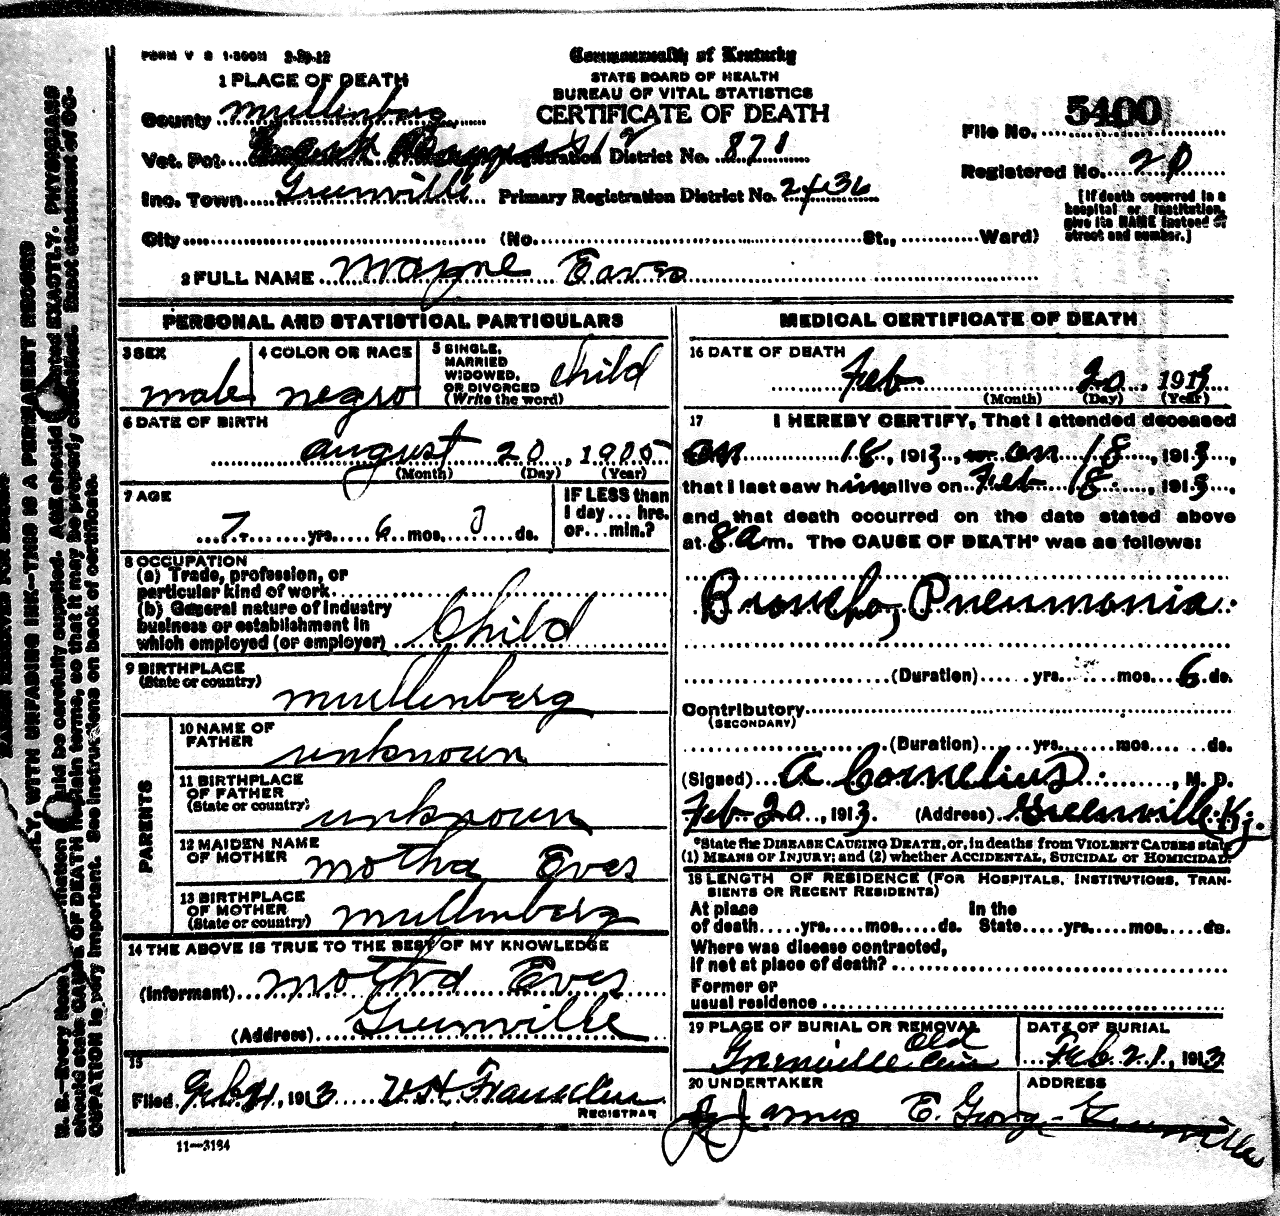 FORM V S 1-500M 2-29-12
Commonwealth of Kentucky
STATE BOARD OF HEALTH
BUREAU OF VITAL STATISTICS
CERTIFICATE OF DEATH
1 PLACE OF DEATH
County Mullenberg
Vot. Pct. Registration District No. 871
Inc. Town Greenville Primary Registration District No. 2436
City (No. St., Ward)
File No. 5400
Registered No. 20
[If death occurred in a
hospital or institution,
give its NAME instead of
street and number.]
2 FULL NAME Wayne Eaves
PERSONAL AND STATISTICAL PARTICULARS
3 SEX
male
4 COLOR OR RACE
negro
5 SINGLE,
MARRIED
WIDOWED,
OR DIVORCED
(Write the word)
child
6 DATE OF BIRTH
august 20, 1905
(Month) (Day) (Year)
7 AGE
7 yrs. 6 mos. 0 ds.
IF LESS than
1 day... hrs.
or... min.?
8 OCCUPATION
(a) Trade, profession, or
particular kind of work
(b) General nature of industry
business or establishment in
which employed (or employer)
Child
9 BIRTHPLACE
(State or country)
mullenberg
PARENTS
10 NAME OF
FATHER
unknown
11 BIRTHPLACE
OF FATHER
(State or country)
unknown
12 MAIDEN NAME
OF MOTHER
motha Eves
13 BIRTHPLACE
OF MOTHER
(State or country)
mullenberg
14 THE ABOVE IS TRUE TO THE BEST OF MY KNOWLEDGE
(Informant) motha Eves
(Address) Greenville
15
Filed Feb 21, 1913 Franklin
REGISTRAR
11-3184
MEDICAL CERTIFICATE OF DEATH
16 DATE OF DEATH
Feb 20, 1913
(Month) (Day) (Year)
17 I HEREBY CERTIFY, That I attended deceased
on 18, 1913, on 18, 1913,
that I last saw him alive on Feb 18, 1913,
and that death occurred on the date stated above
at 8 a m. The CAUSE OF DEATH* was as follows:
Broncho, Pneumonia
(Duration) yrs. mos. 6 ds.
Contributory
(SECONDARY)
(Duration) yrs. mos. ds.
(Signed) A Cornelius, M. D.
Feb 20, 1913 (Address) Greenville Ky.
*State the DISEASE CAUSING DEATH, or, in deaths from VIOLENT CAUSES state
(1) MEANS OF INJURY; and (2) whether ACCIDENTAL, SUICIDAL or HOMICIDAL.
18 LENGTH OF RESIDENCE (FOR HOSPITALS, INSTITUTIONS, TRAN-
SIENTS OR RECENT RESIDENTS)
At place In the
of death yrs. mos. ds. State yrs. mos. ds.
Where was disease contracted,
If not at place of death?
Former or
usual residence
19 PLACE OF BURIAL OR REMOVAL
Old
Greenville Cem
DATE OF BURIAL
Feb 21, 1913
20 UNDERTAKER
James E. George
ADDRESS
Greenville
N. B.—Every item
should state CAUSE OF DEATH in plain terms, so that it may be properly classified. Exact statement of OC-
CUPATION is very important. See instructions on back of certificate.
WITH UNFADING INK—THIS IS A PERMANENT RECORD